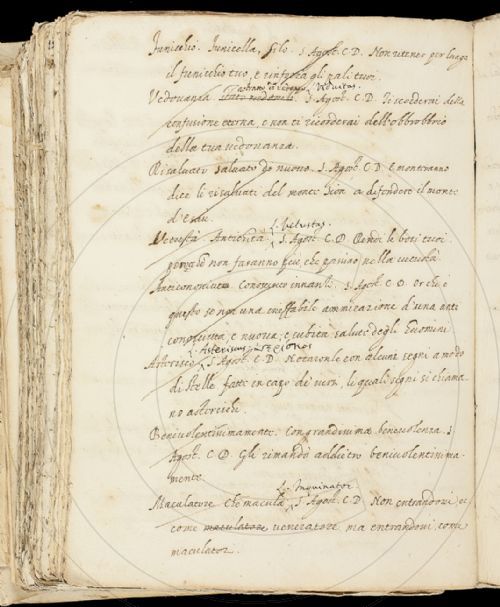 Funicchio. Funicella, filo. S. Agost. C. D. Non
il funicchio tuo, e rinforza gli pali tuoi.
Viduitas.
Vedovanza S. Agost. C. D. Ti scorderai della
confusione eterna, e non ti ricorderai dell'obbrobbrio
della tua vedovanza.
Risalvato salvato di nuovo. S. Agost. C. D. E monteranno
dice li risalvati del monte Sion a difendere il monte
d'Esau.
L. Vetustas.
Antichità S. Agost. C. D. Rendi le bovi tuoi
non faranno che nella
Anticonosciuto Conosciuto innanti. S. Agost. C. D. Or che è
questo se non una ineffabile ammirazione d'una anti
conosciuta, e nuova, e subita salute degli Huomini
L. Asteriscus
Asterisco S. Agost. C. D. Notaronle con alcuni segni a modo
di stelle fatte in capo de versi, li quali segni si chiama
no asterischi.
Benivolentissimamente. Con grandissima benevolenza. S.
Agost. C. D. Gli rimandò addietro benivolentissima
mente
L. Inquinator
Maculatore Che macula S. Agost. C. D. Non entrandovi
come maculatore veneratore ma entrandovi come
maculator.